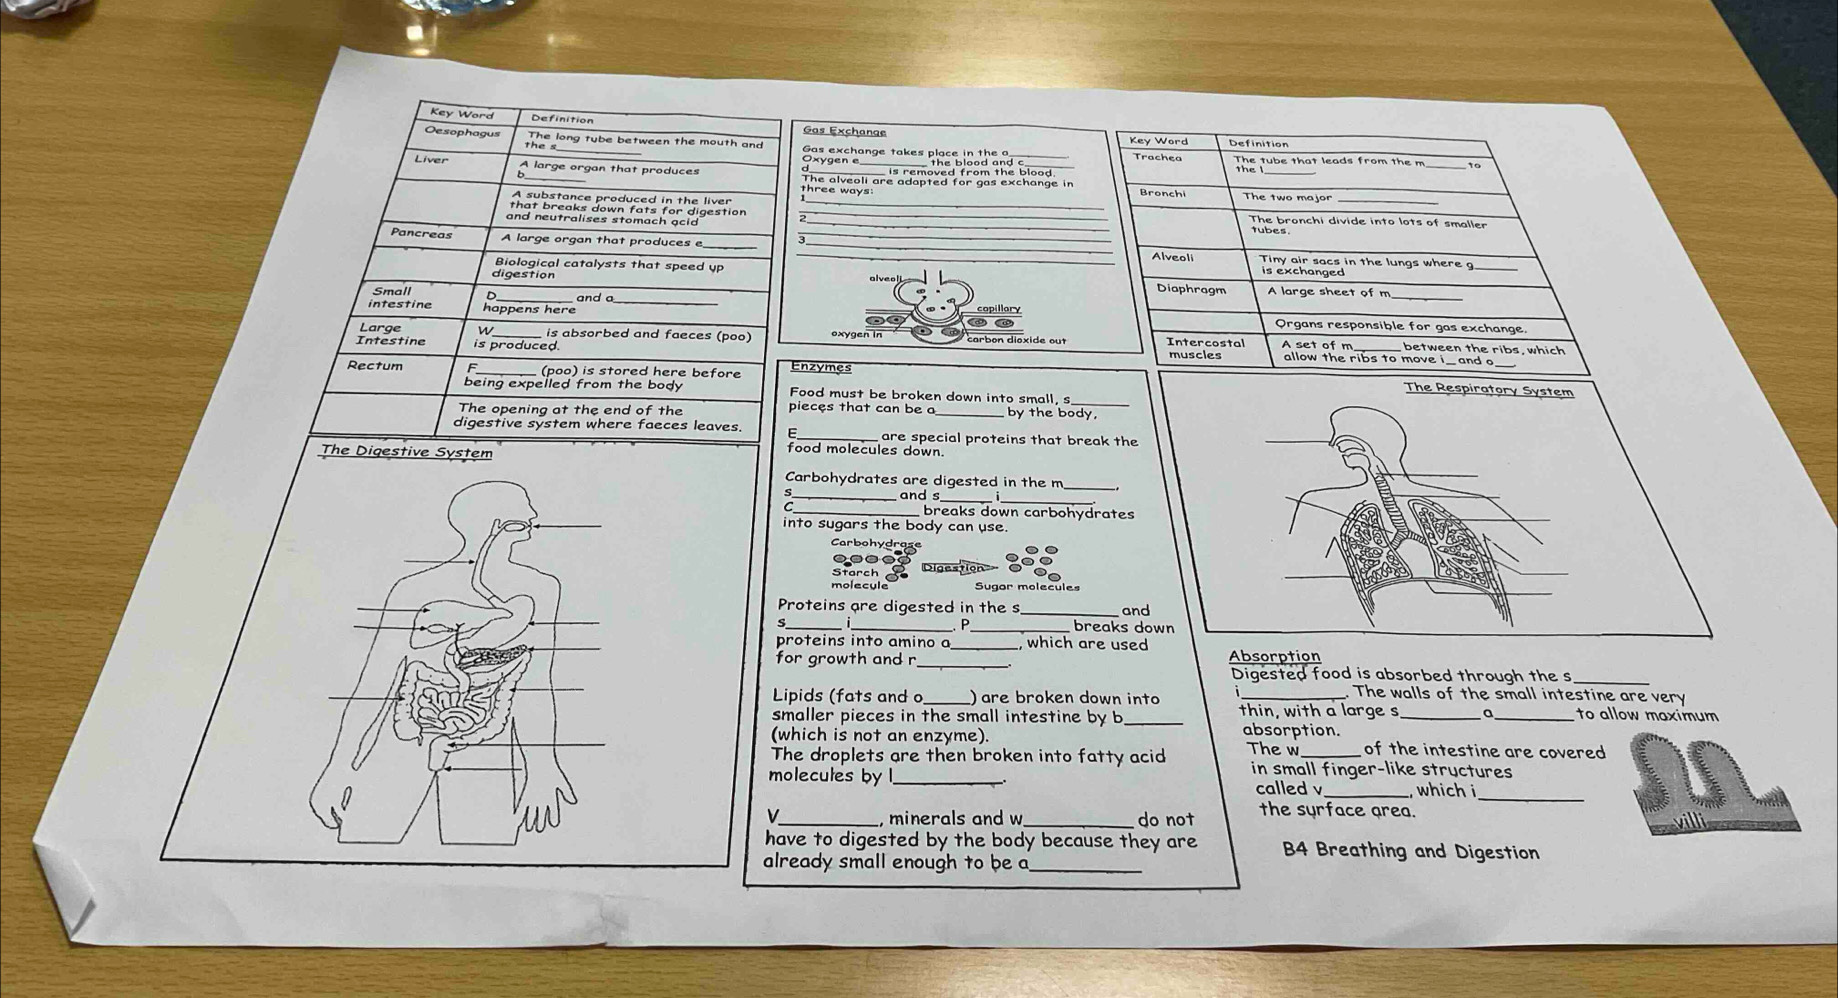 Key Word Definition
Oesophagus The long tube between the mouth and
the s__________
Liver A large organ that produces
b__________
A substance produced in the liver
that breaks down fats for digestion
and neutralises stomach acid
Pancreas A large organ that produces e________
Biological catalysts that speed up
digestion
Small
intestine
D__________ and a______________
happens here
Large
Intestine
W______ is absorbed and faeces (poo)
is produced.
Rectum F________ (poo) is stored here before
being expelled from the body
The opening at the end of the
digestive system where faeces leaves.
The Digestive System
Gas Exchange
Gas exchange takes place in the a________
Oxygen e_________ the blood and c_______
d__________ is removed from the blood.
The alveoli are adapted for gas exchange in
three ways:
1
2
3
alveoli
capillary
oxygen in
carbon dioxide out
Enzymes
Food must be broken down into small, s________
pieces that can be a_________ by the body,
E__________ are special proteins that break the
food molecules down.
Carbohydrates are digested in the m_______,
s______________ and s_______ i____________.
C________________ breaks down carbohydrates
into sugars the body can use.
Carbohydrase
Starch
molecule
Digestion
Sugar molecules
Proteins are digested in the s____________ and
s_______ i_____________. P____________ breaks down
proteins into amino a________, which are used
for growth and r___________.
Lipids (fats and o_____) are broken down into
smaller pieces in the small intestine by b_______
(which is not an enzyme).
The droplets are then broken into fatty acid
molecules by l____________.
V____________, minerals and w_____________ do not
have to digested by the body because they are
already small enough to be a_____________
Key Word Definition
Trachea The tube that leads from the m______ to
the l________
Bronchi The two major ______________
The bronchi divide into lots of smaller
tubes.
Alveoli Tiny air sacs in the lungs where g______
is exchanged
Diaphragm A large sheet of m__________
Organs responsible for gas exchange.
Intercostal
muscles
A set of m_______ between the ribs, which
allow the ribs to move i__ and o___.
The Respiratory System
Absorption
Digested food is absorbed through the s_________
i____________. The walls of the small intestine are very
thin, with a large s_________ a_________ to allow maximum
absorption.
The w_______ of the intestine are covered
in small finger-like structures
called v__________, which i____________
the surface area.
villi
B4 Breathing and Digestion